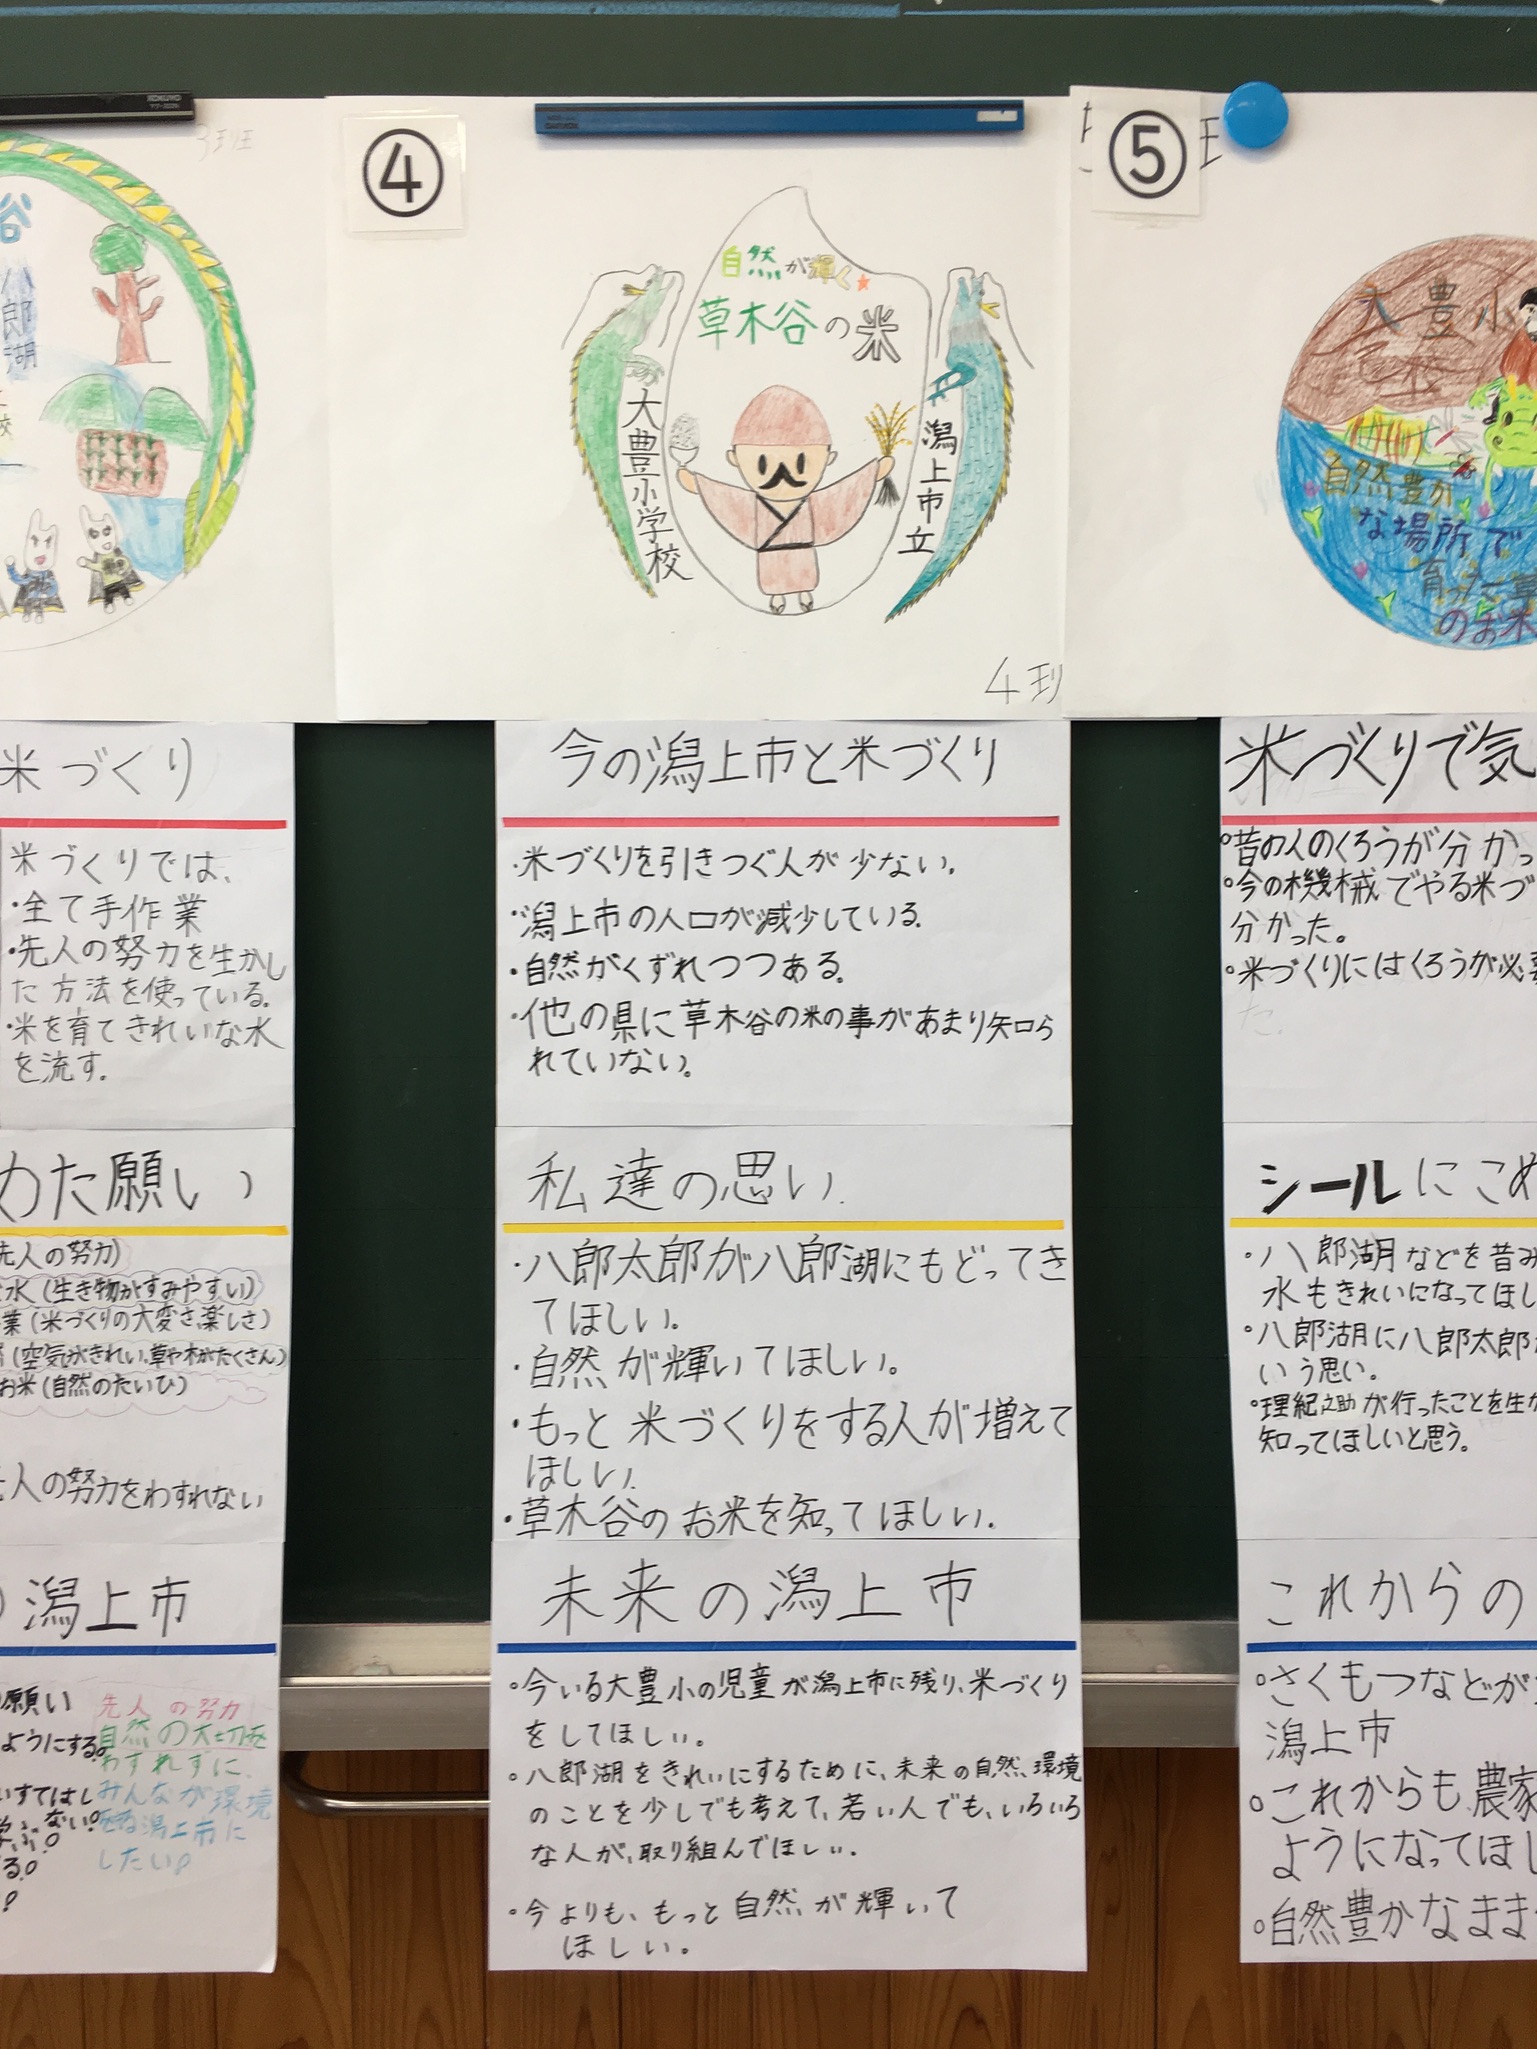 KOKUYO
3班
谷
八郎湖
④
自然が輝く
草木谷の米
大豊小学校
潟上市立
4班
⑤
班
大豊小
校
自然豊か
な場所で
育った
のお米
米づくり
米づくりでは、
・全て手作業
・先人の努力を生かし
た方法を使っている。
・米を育てきれいな水
を流す。
めた願い
先人の努力)
水(生き物がすみやすい)
業(米づくりの大変さ、楽しさ)
(空気がきれい、草や木がたくさん)
お米(自然のたいひ)
人の努力をわすれない
潟上市
願い
ようにする。
先人の努力
自然の大切を
わすれずに、
みんなが環境
潟上市に
したい!
今の潟上市と米づくり
・米づくりを引きつぐ人が少ない。
・潟上市の人口が減少している。
・自然がくずれつつある。
・他の県に草木谷の米の事があまり知ら
れていない。
私達の思い
・八郎太郎が八郎湖にもどってき
てほしい。
・自然が輝いてほしい。
・もっと米づくりをする人が増えて
ほしい。
・草木谷のお米を知ってほしい。
未来の潟上市
・今いる大豊小の児童が潟上市に残り、米づくり
をしてほしい。
・八郎湖をきれいにするために、未来の自然、環境
のことを少しでも考えて、若い人でも、いろいろ
な人が、取り組んでほしい。
・今よりも、もっと自然が輝いて
ほしい。
米づくりで気
・昔の人のくろうが分かっ
・今の機械でやる米づ
分かった。
・米づくりにはくろうが必要
た。
シールにこめ
・八郎湖などを昔み
水もきれいになってほし
・八郎湖に八郎太郎が
いう思い。
・理紀之助が行ったことを生か
知ってほしいと思う。
これからの
・さくもつなどが
潟上市
・これからも農家
ようになってほし
・自然豊かなまま